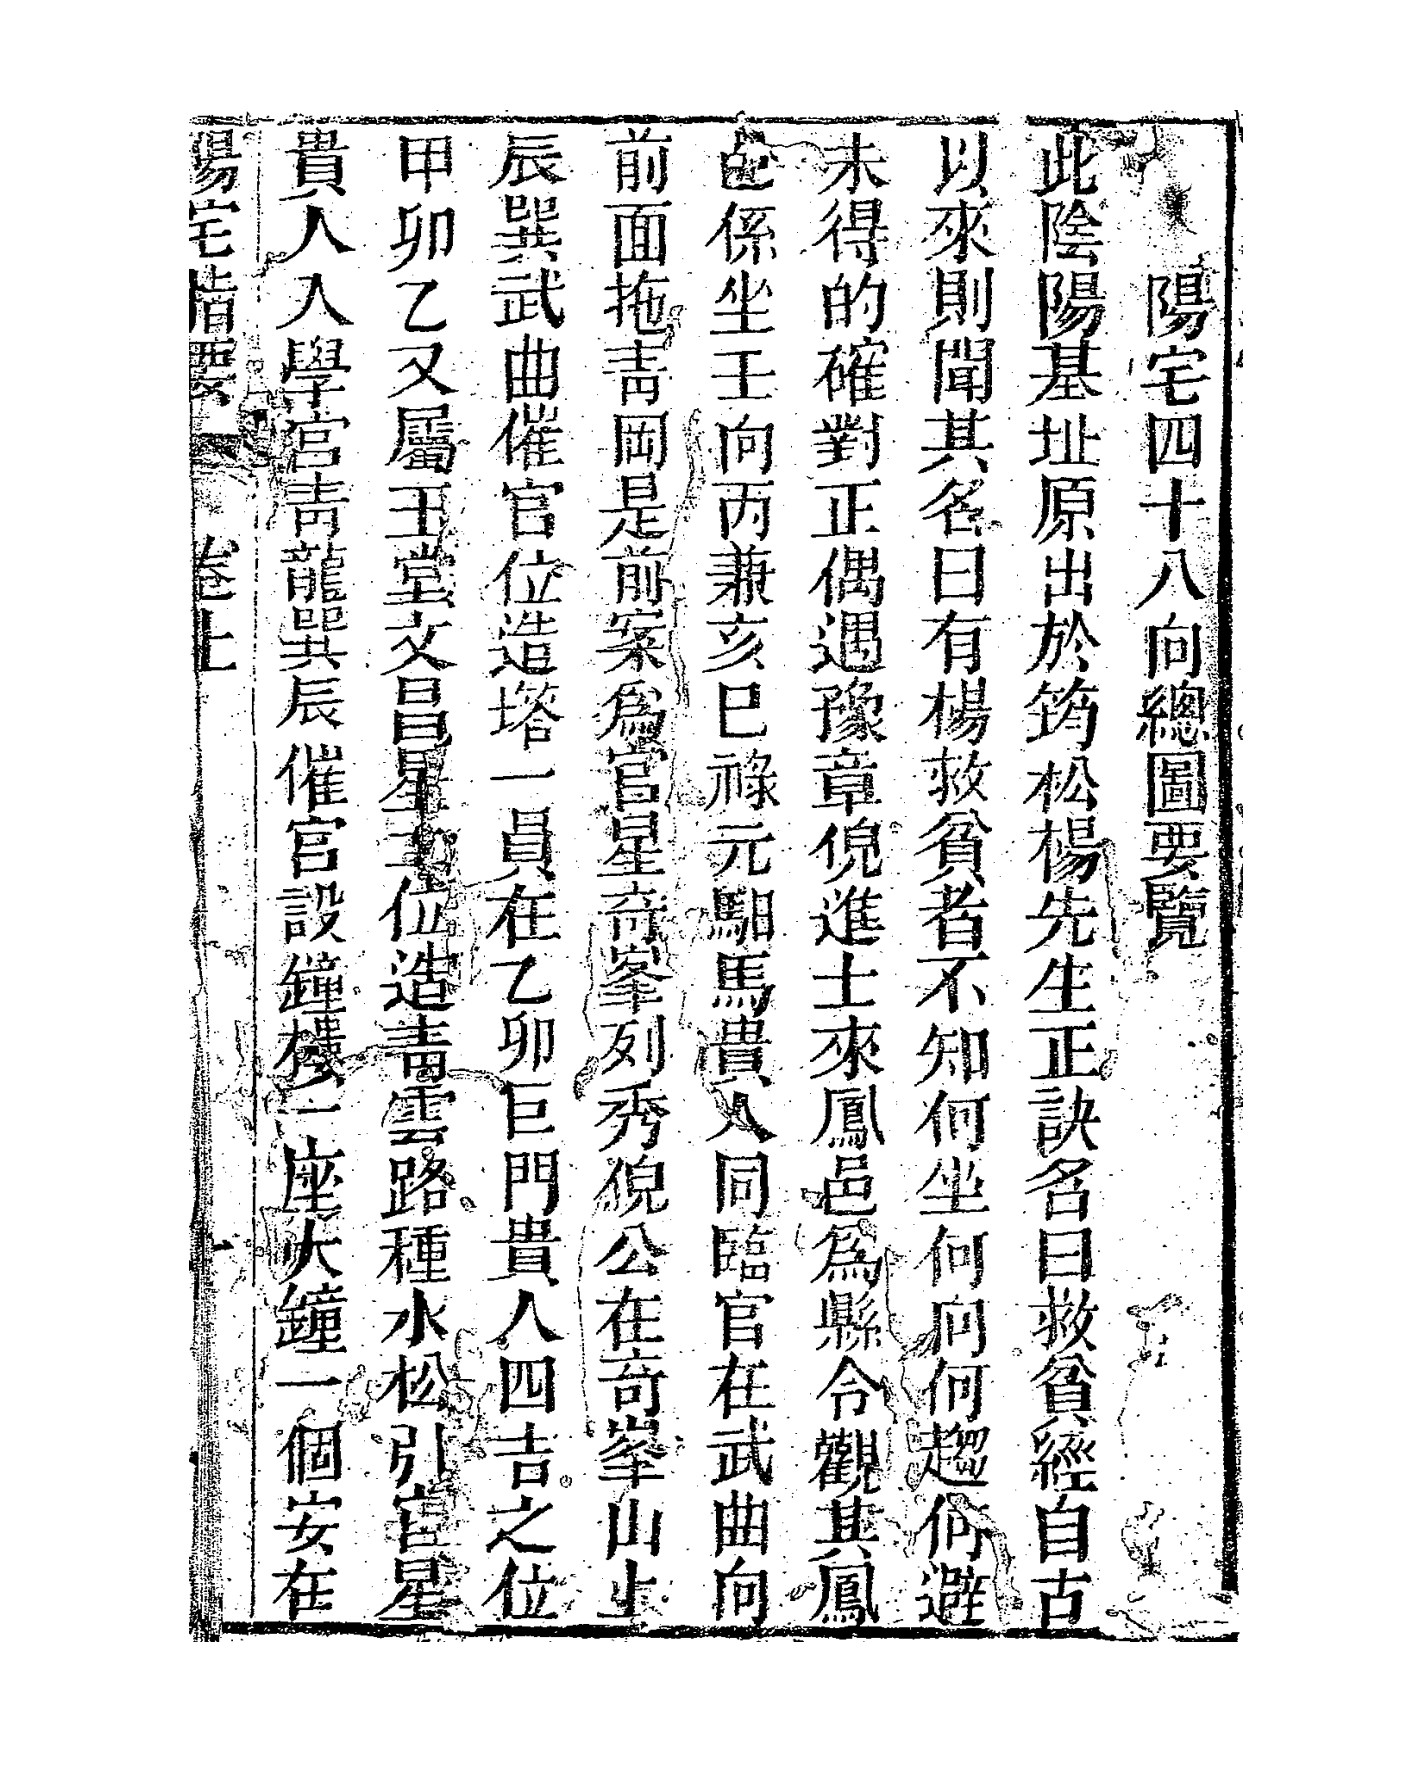 陽宅四十八向總圖要覽
此陰陽基址原出於筠松楊先生正訣名曰救貧經自古
以來則聞其名曰有楊救貧者不知何坐何向何趨何避
未得的確對正偶遇豫章倪進士來鳳邑爲縣令觀其鳳
邑係坐壬向丙兼亥巳祿元馹馬貴人同臨官在武曲向
前面拖靑岡是前案爲官星奇峯列秀猊公在奇峯山上
辰巽武曲催官位造塔一員在乙卯巨門貴人四吉之位
甲卯乙又屬玉堂文昌星玉位造靑雲路種水松引官星
貴人入學宮靑龍巽辰催官設鐘樓一座大鐘一個安在
陽宅指要 卷上 一